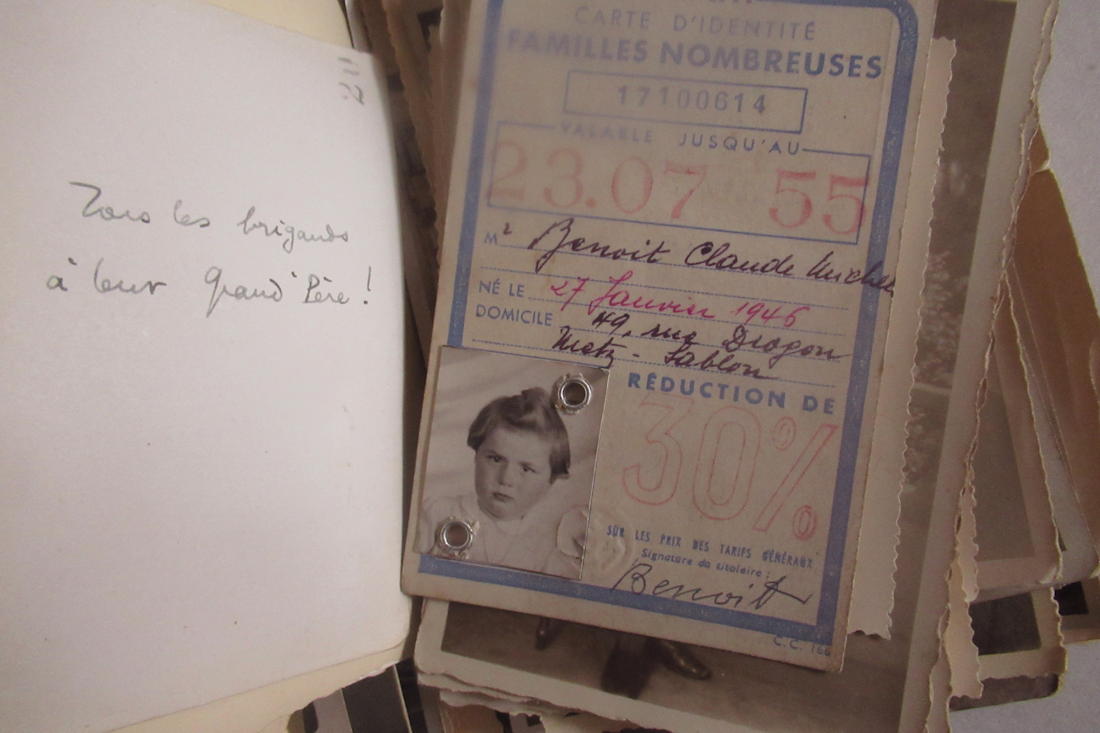 Tous les brigands
à leur Grand'Père !
CARTE D'IDENTITÉ
FAMILLES NOMBREUSES
17100614
VALABLE JUSQU'AU
23.07 55
Mr Benoit Claude Michel
NÉ LE 27 Janvier 1946
DOMICILE 49, rue Drogon
Metz - Sablon
RÉDUCTION DE
30%
SUR LES PRIX DES TARIFS GÉNÉRAUX
Signature du titulaire :
Benoit
C.C. 166